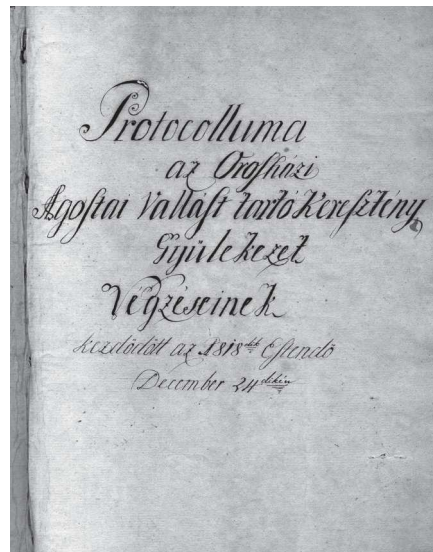 Protocolluma
az Orosházi
Ágostai Vallást tartó Keresztény
Gyülekezet
Végzéseinek
kezdödött az 1818dik Esztendö
December 24dikén